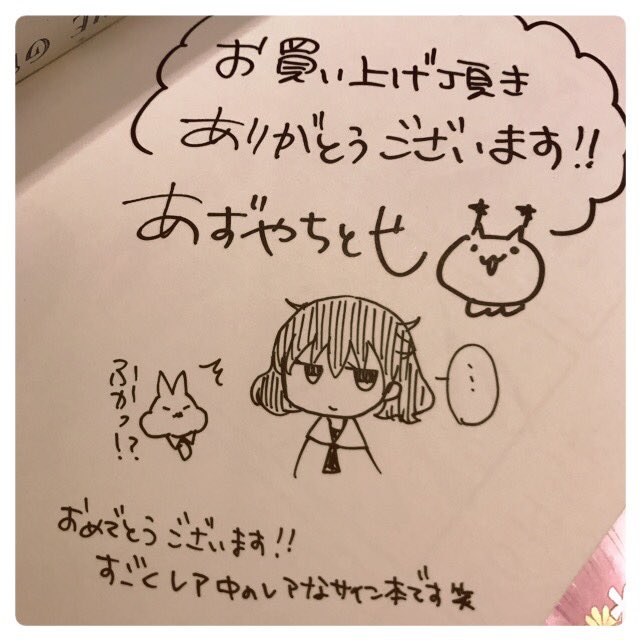 お買い上げ頂き
ありがとうございます!!
あずやちとせ
…
ふかっ!?
おめでとうございます!!
すごくレア中のレアなサイン本です笑